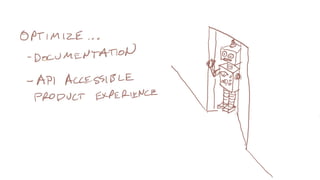 OPTIMIZE...
- DOCUMENTATION
- API ACCESSIBLE
PRODUCT EXPERIENCE